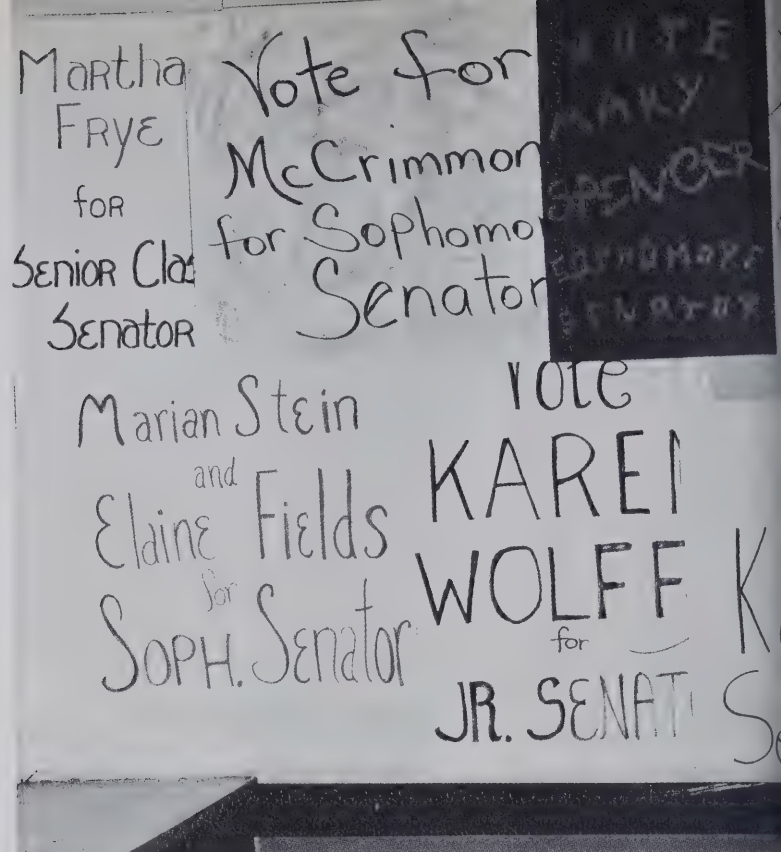 Martha
Frye
for
Senior Clas
Senator
Vote for
McCrimmon
for Sophomo
Senator
VOTE
MARY
SPENCER
SOPHOMORE
SENATOR
Marian Stein
and
Elaine Fields
for
Soph. Senator
Vote
KAREN
WOLFF
for
JR. SENAT
K
Se